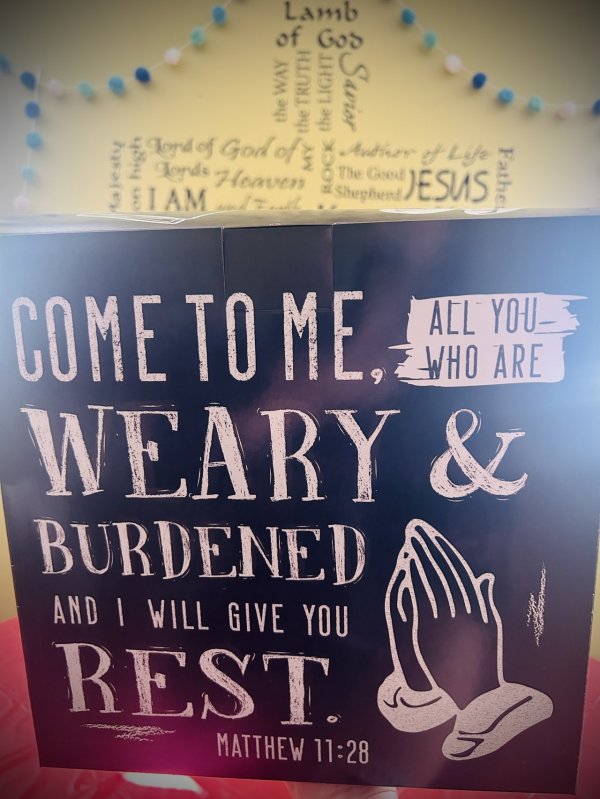 Lamb
of God
the WAY
the TRUTH
the LIGHT
Savior
Majesty
on high
Lord of
Lords
I AM
God of
Heaven
and Earth
MY
ROCK
Author of Life
The Good
Shepherd
JESUS
COME TO ME,
ALL YOU
WHO ARE
WEARY &
BURDENED
AND I WILL GIVE YOU
REST.
MATTHEW 11:28